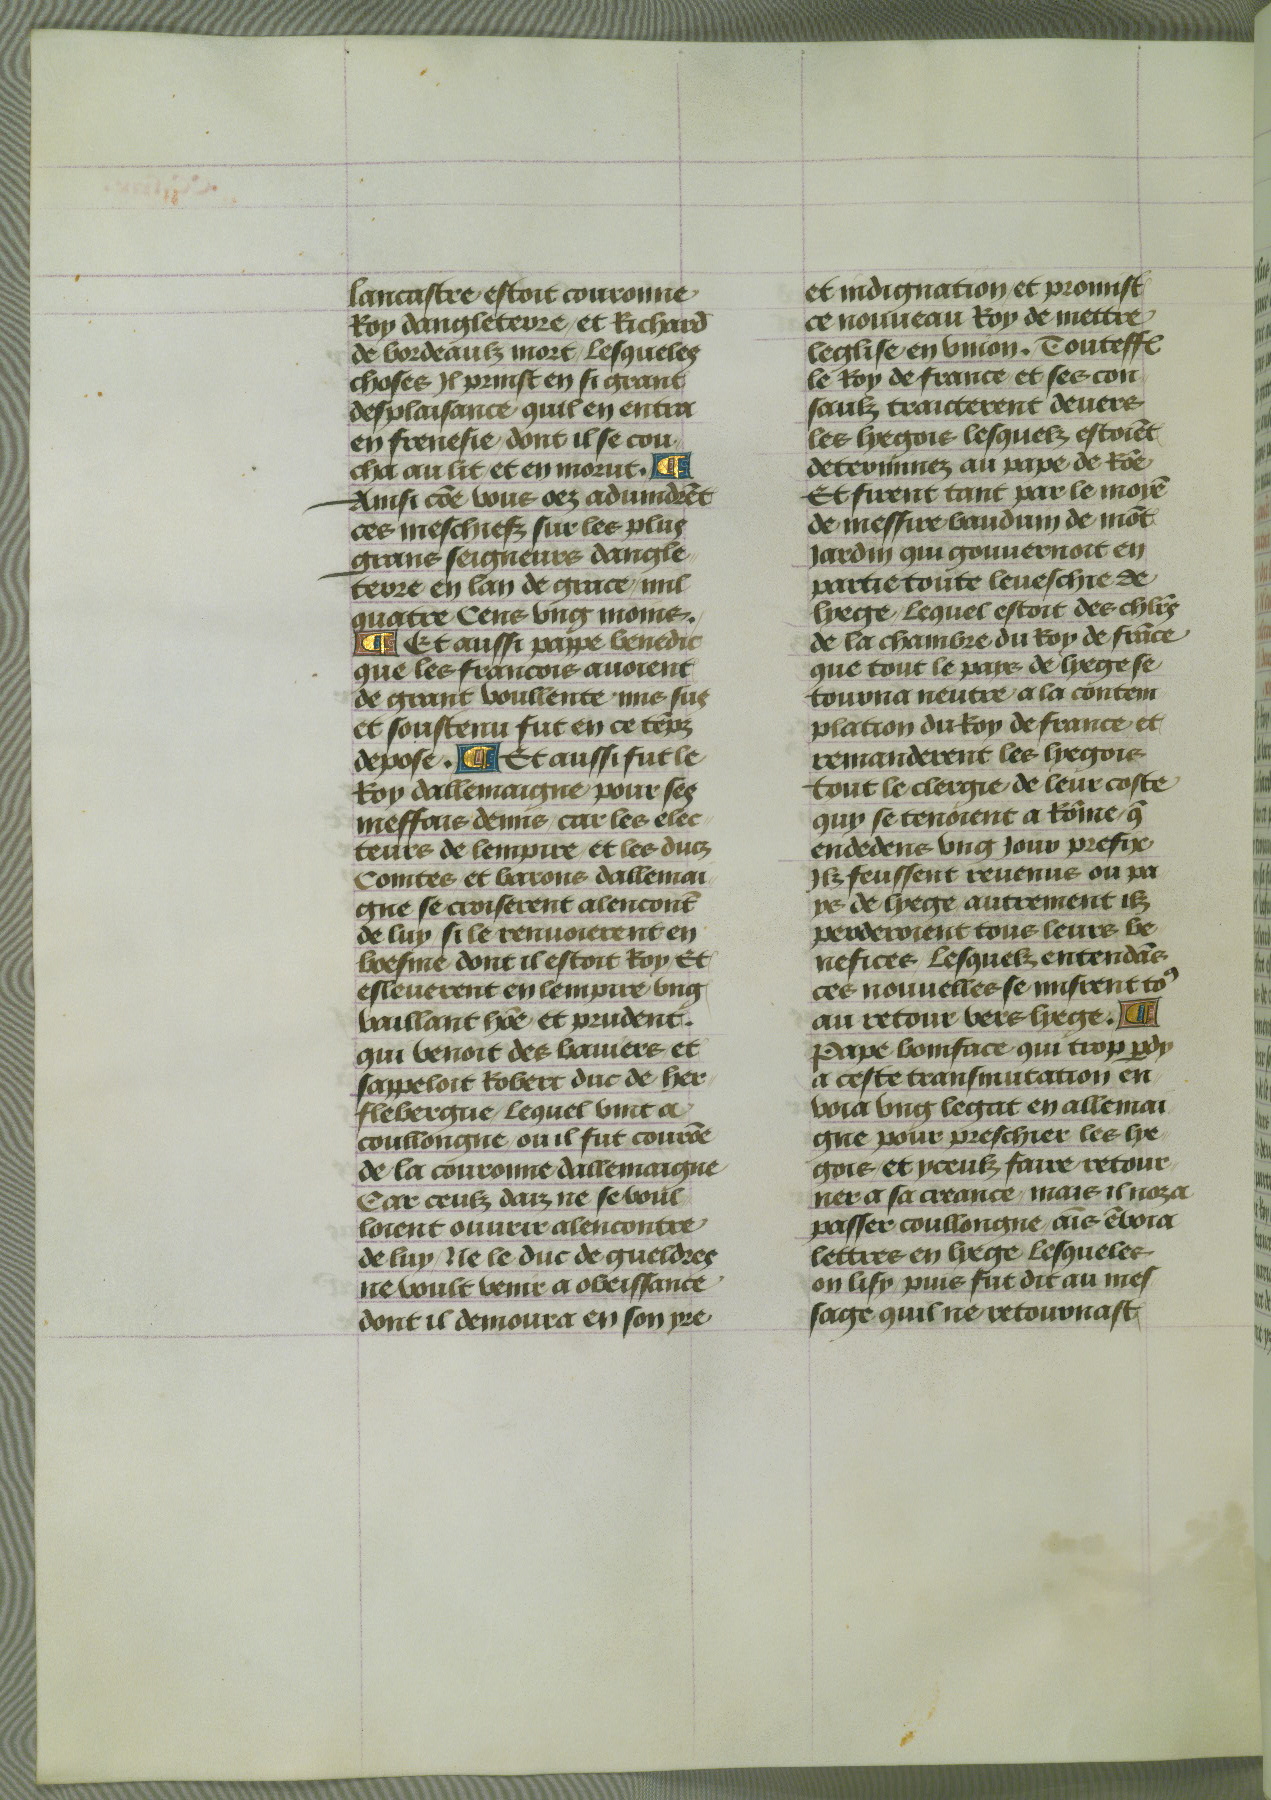 lancastre estoit couronne
Roy dangleterre et Richard
de bordeaulz mort / Lesqueles
choses Il prinst en si grant
desplaisance quil en entra
en frenesie dont il se cou
cha au lit et en morut. ¶
Ainsi cõe vous oez aduindrẽt
ces meschiefz sur les plus
grans seigneurs dangle
terre en lan de grace mil
quatre Cens vng moins.
¶ Et aussi pappe benedic
que les francois auoient
de grant voullente mis sus
et soustenu fut en ce tẽpz
depose. ¶ Et aussi fut le
Roy dallemaigne pour ses
meffais demis / car les elec
teurs de lempire et les ducz
Comtes et barons dallemai
gne se croiserent alencont̃
de luy si le renuoierent en
boesme dont il estoit Roy / Et
esleuerent en lempire vng
vaillant hõe et prudent.
qui venoit des bauiers et
sappeloit Robert duc de her
flebergue / Lequel vint a
coullongne ou il fut courõe
de la couronne dallemaigne
Car ceulz daiz ne se voul
loient ouurir alencontre
de luy / Ne le duc de gueldres
ne voult venir a obeissance
dont il demoura en son yre
et indignation / et promist
ce nouueau Roy de mettre
leglise en vnion. Touteff̃
le Roy de france et ses con
saulz traicterent deuers
les liegois lesquelz estoiẽt
determinez au pape de Rõe
Et firent tant par le moyẽ
de messire bauduin de mõt
Jardin qui gouuernoit en
partie toute leueschie de
liege / Lequel estoit des chl̃rs
de la chambre du Roy de frãnce
que tout le pays de liege se
tourna neutre a la contem
plation du Roy de france et
remanderent les liegois
tout le clergie de leur coste
quy se tenoient a Rõme / q̃
endedens vng Jour prefix
Ilz feussent reuenus ou pa
ys de liege autrement ilz
perderoient tous leurs be
nefices / Lesquelz entendãs
ces nouuelles se misrent to9
au retour vers liege. ¶
Pape boniface qui trop p̱dy
a ceste transmutation en
voia vng legat en allemai
gne pour preschier les lie
gois et yceulz faire retour
ner a sa creance / mais il noza
passer coullongne / ãis ẽvoia
lettres en liege / Lesqueles
on lisy / puis fut dit au mes
sage quil ne retournast